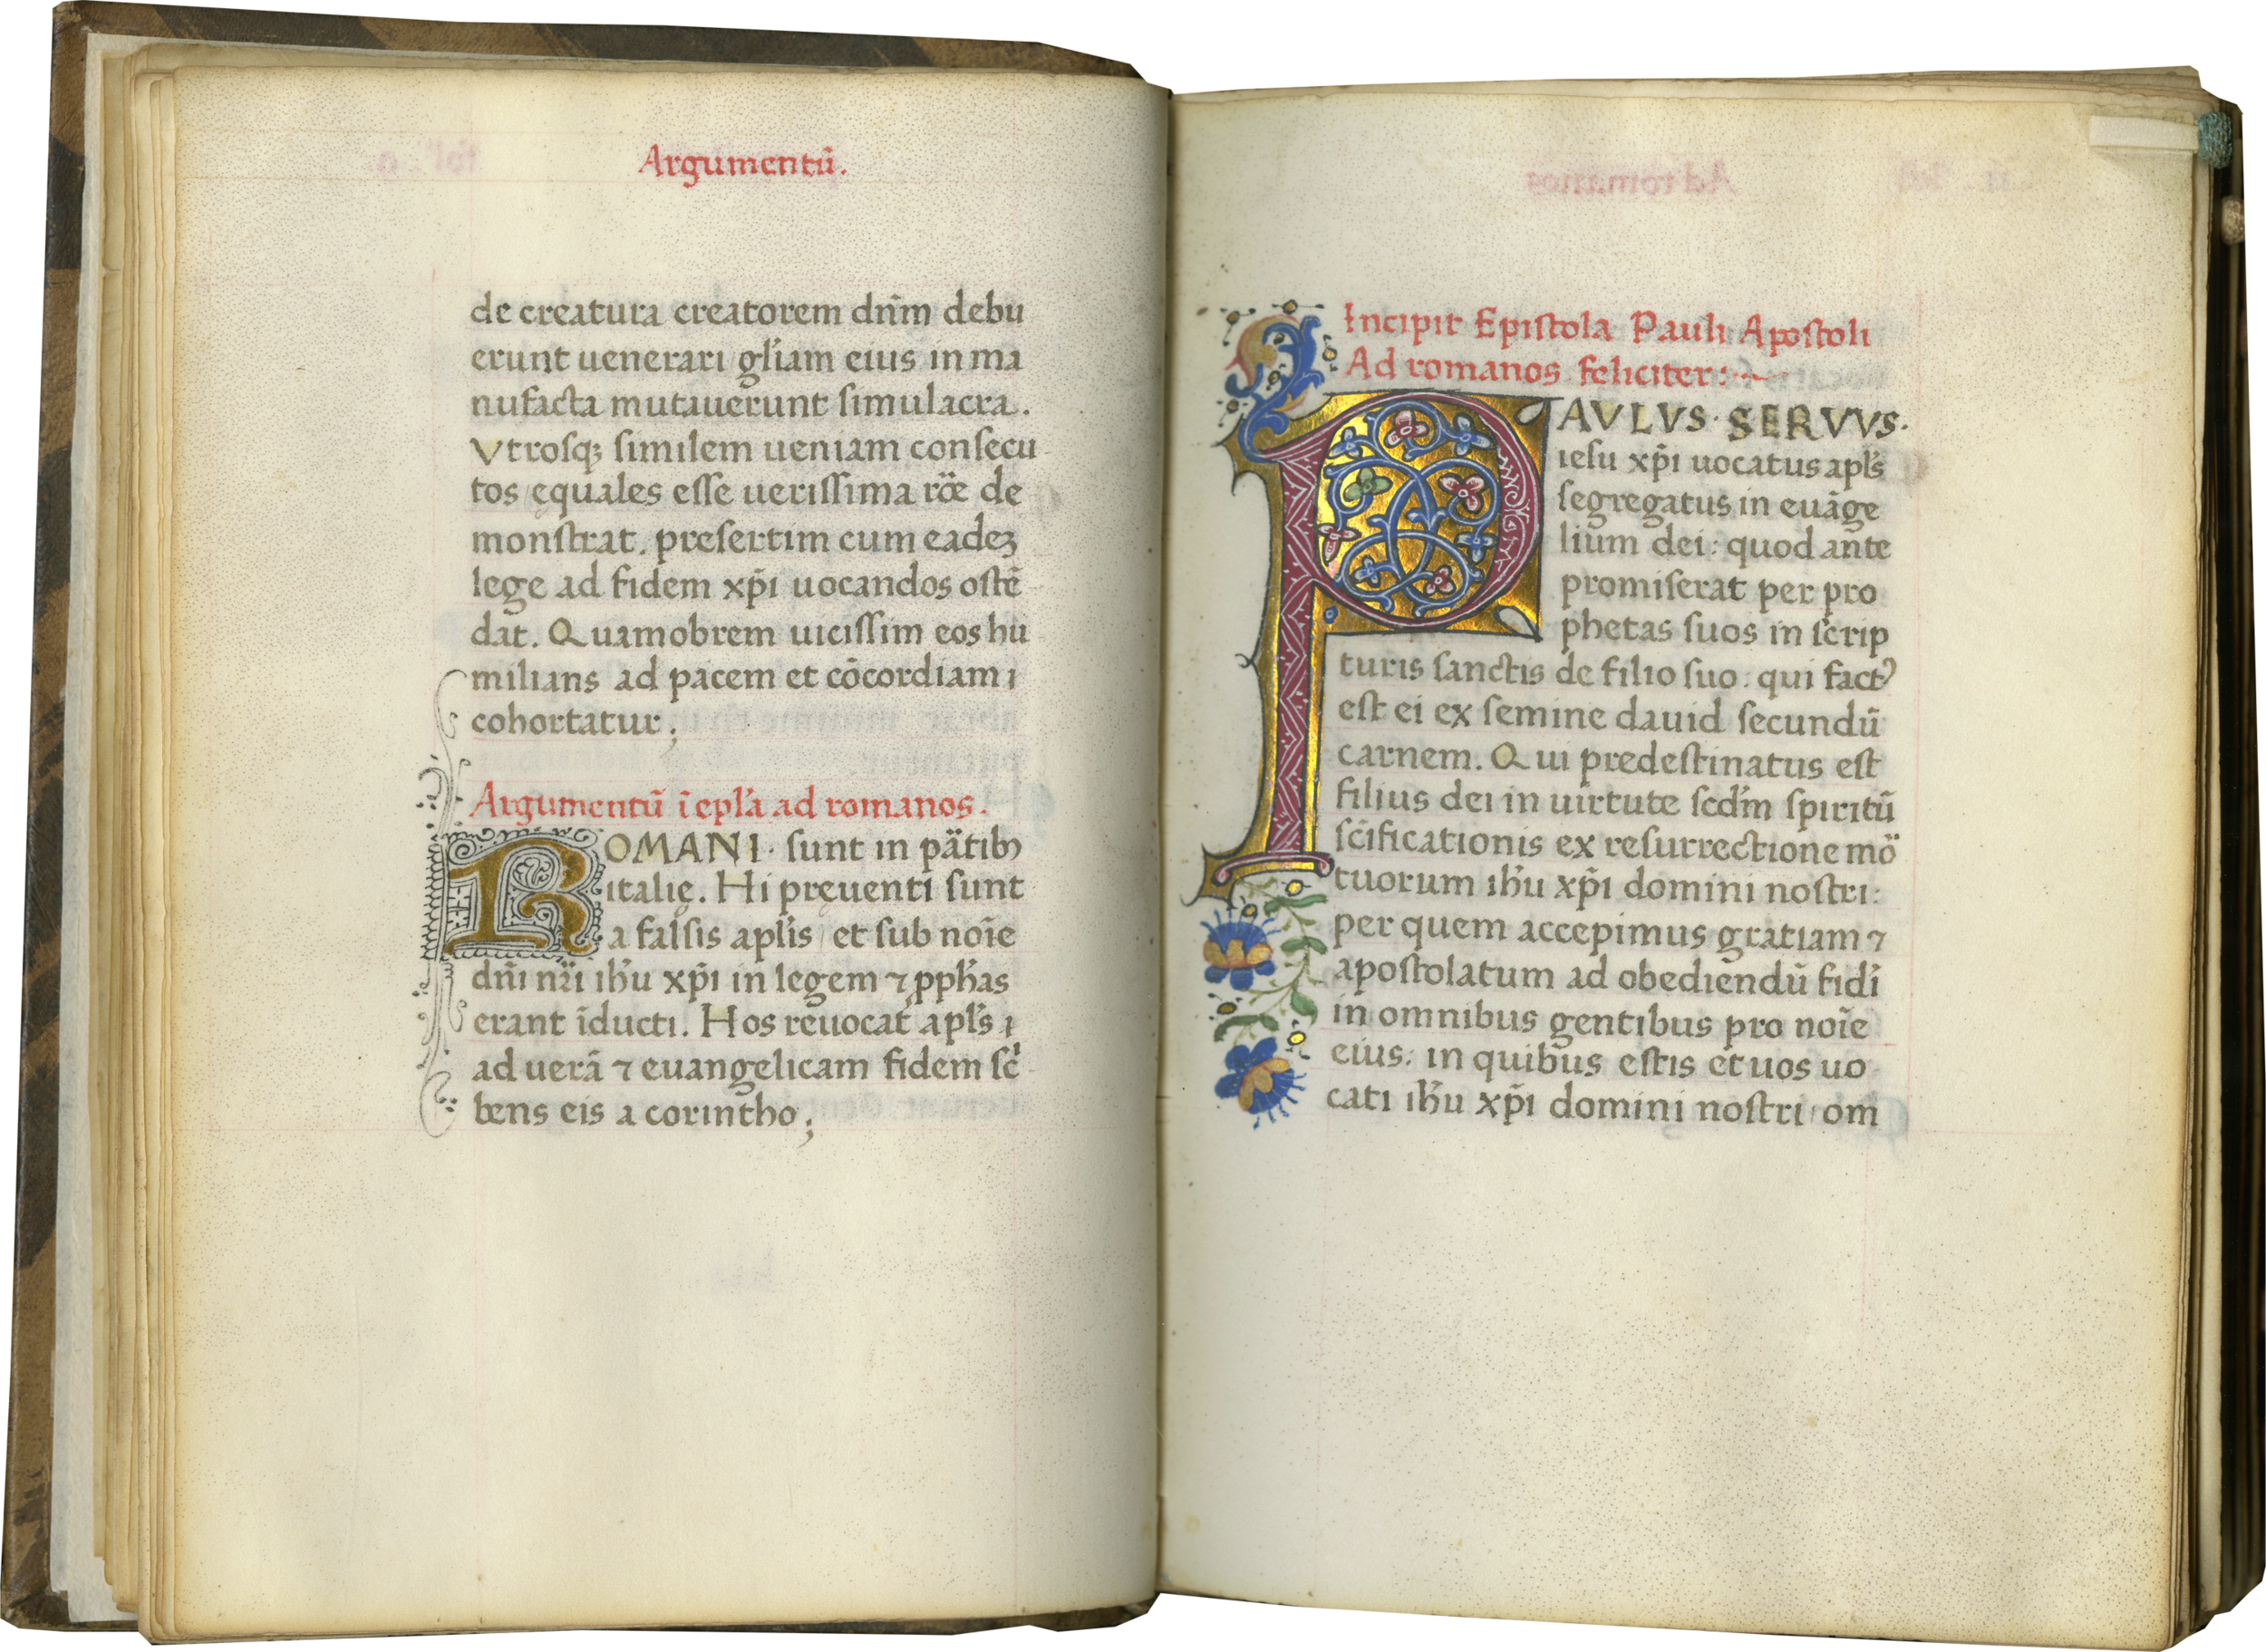 Argumentū.
de creatura creatorem dn̄m debu
erunt uenerari gl̄iam eius in ma
nufacta mutauerunt simulacra.
Vtrosqꝫ similem ueniam consecu
tos ęquales esse uerissima rōe de
monstrat. presertim cum eadeꝫ
lege ad fidem xp̄i uocandos ostē
dat. Quamobrem uicissim eos hu
milians ad pacem et cōcordiam
cohortatur;
Argumentū ī epl̄a ad romanos.
ROMANI· sunt in ptibꝫ
italię. Hi pręuenti sunt
a falsis apl̄is et sub noīe
dn̄i nr̄i ih̄u xp̄i in legem ⁊ ꝓph̄as
erant īducti. Hos reuocat apl̄s
ad uerā ⁊ euangelicam fidem sc̄
bens eis a corintho;
Incipit Epistola Pauli Apostoli
Ad romanos feliciter:
PAVLVS· SERVVS.
iesu xp̄i uocatus apl̄s
segregatus in euāge
lium dei: quod ante
promiserat per pro
phetas suos in scrip
turis sanctis de filio suo: qui factꝰ
est ei ex semine dauid secundū
carnem. Qui predestinatus est
filius dei in uirtute scd̄m spiritū
sc̄ificationis ex resurrectione mo
tuorum ih̄u xp̄i domini nostri:
per quem accepimus gratiam ⁊
apostolatum ad obediendū fidi
in omnibus gentibus pro noīe
eius: in quibus estis et uos uo
cati ih̄u xp̄i domini nostri om